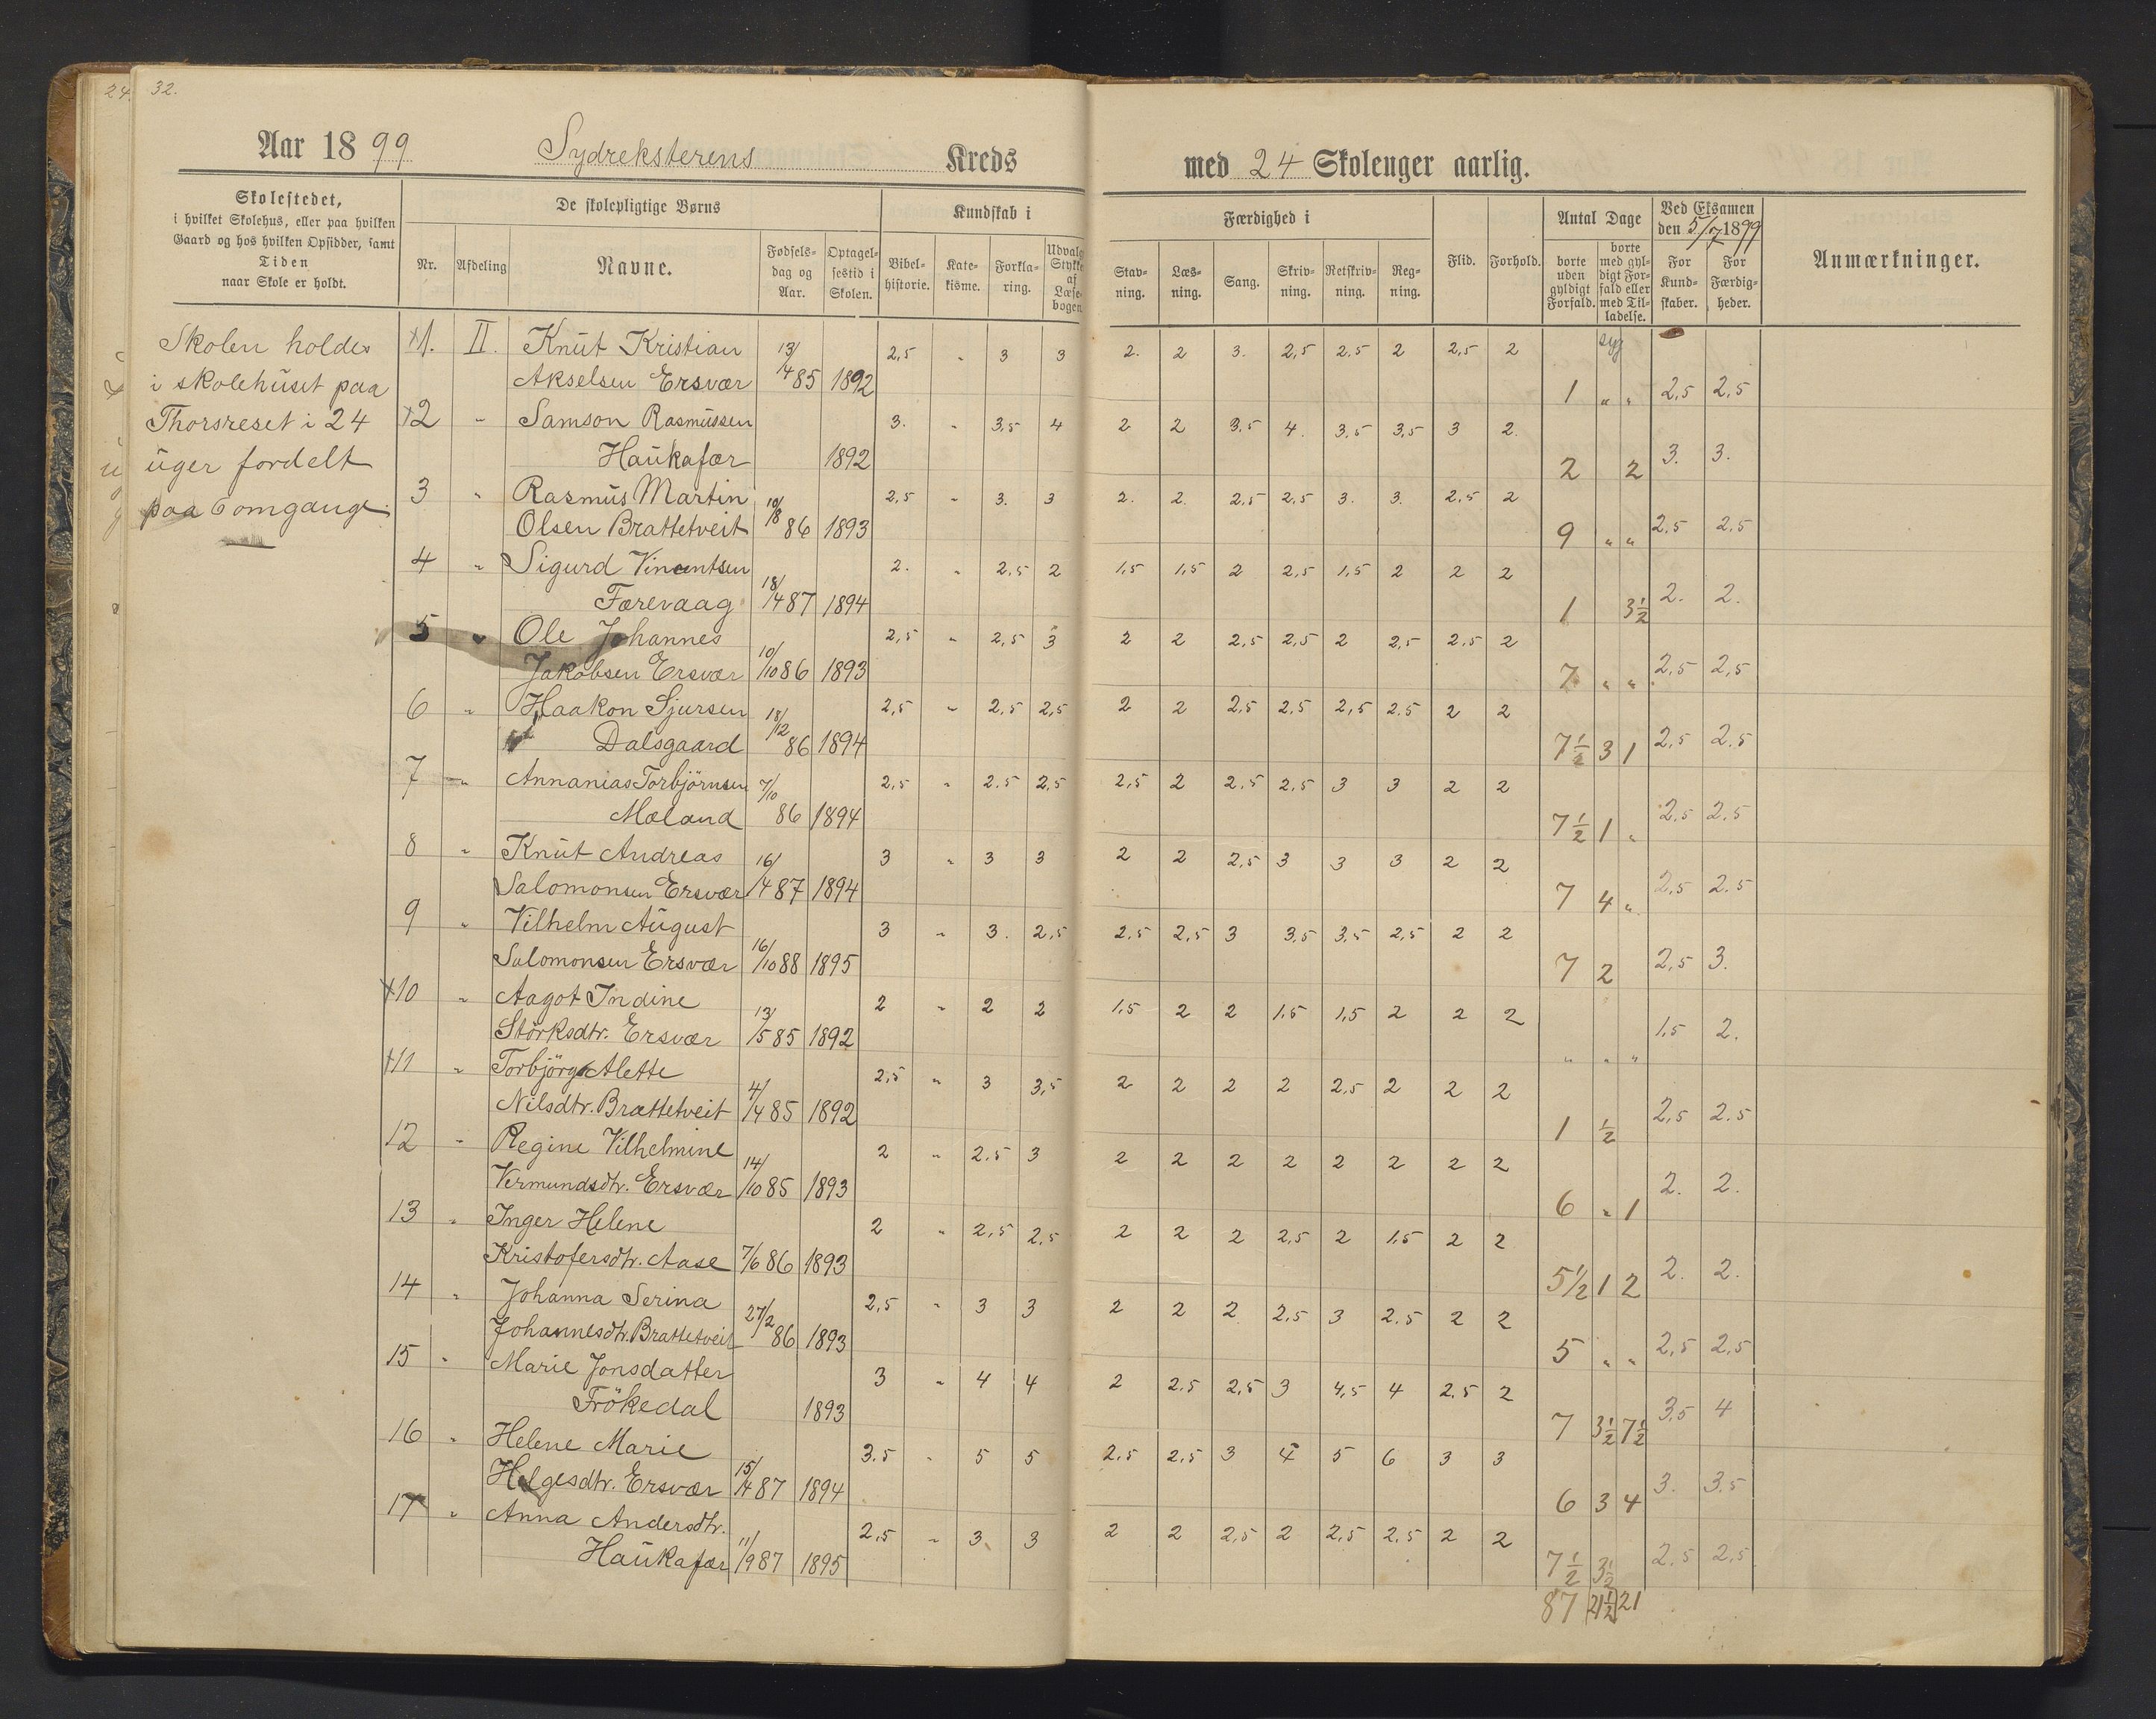 24. 32.
Aar 1899 Sydreksterens Kreds med 24 Skolenger aarlig.
Skolestedet,
i hvilket Skolehus, eller paa hvilken
Gaard og hos hvilken Opsidder, samt
Tiden
naar Skole er holdt.
De skolepligtige Børns
Nr. Afdeling Navne. Fødsels-dag og Aar. Optagel-sestid i Skolen.
Kundskab i
Bibel-historie. Kate-kisme. Forkla-ring. Udvalg Stykke af Læse-bogen
Færdighed i
Stav-ning. Læs-ning. Sang. Skriv-ning. Retskriv-ning. Reg-ning. Flid. Forhold.
Antal Dage
borte uden gyldigt Forfald. borte med gyl-digt For-fald eller med Til-ladelse.
Ved Eksamen
den 5/7 1899
For Kund-skaber. For Færdig-heder.
Anmærkninger.
Skolen holdes
i skolehuset paa
Thorsreset i 24
uger fordelt
paa 6 omgange.
syg
+1. II. Knut Kristian 13/ 2,5 „ 3 3 2. 2 3. 2,5 2.5 2 2,5 2
Akselsen Ersvær /4 85 1892 1 „ „ 2,5 2,5
+2 „ Samson Rasmussen 3. „ 3,5 4 2 2 3.5 4. 3,5 3,5 3 2.
Haukafær 1892 2 2 3. 3.
3 „ Rasmus Martin 10/ 2,5 „ 3. 3 2. 2. 2,5 2,5 3. 3. 2,5 2
Olsen Brattetveit /8 86 1893 9 „ „ 2.5 2.5
4 „ Sigurd Vincentsen 18/ 2. „ 2,5 2 1,5 1,5 2 2,5 1,5 2 2 2
Færevaag /4 87 1894 1 3½ 2. 2.
5 „ Ole Johannes 10/ 2,5 „ 2,5 3 2 2 2,5 2,5 2 2,5 2,5 2
Jakobsen Ersvær /10 86 1893 7 „ „ 2,5 2,5
6 „ Haakon Sjursen 18/ 2,5 „ 2,5 2,5 2 2 2,5 2,5 2,5 2.5 2 2
Dalsgaard /12 86 1894 7½ 3 1 2,5 2.5
7 „ Annanias Torbjörnsen 7/10 2,5 „ 2.5 2,5 2,5 2 2,5 2,5 3 3 2 2
Mæland 86 1894 7½ 1 „ 2.5 2.5
8 „ Knut Andreas 16/ 3 „ 3 3 2 2 2,5 3 3 3 2 2
Salomonsen Ersvær /4 87 1894 7 4 „ 2,5 2.5
9 „ Vilhelm August 16/ 3 „ 3. 2,5 2.5 2,5 3 3,5 3,5 2,5 2 2
Salomonsen Ersvær /10 88 1895 7 2 2,5 3.
+10 „ Aagot Indine 13/ 2 „ 2 2 1.5 2 2 1,5 1,5 2 2 2
Störksdtr. Ersvær /5 85 1892 „ „ „ 1.5 2.
+11 „ Torbjörg Alette 4/ 2,5 „ 3 3,5 2 2 2 2 2,5 2 2 2
Nilsdtr. Brattetveit /4 85 1892 1 ½ 2,5 2.5
12 „ Regine Vilhelmine 14/ 2 „ 2.5 3 2 2 2 2 2 2 2 2
Vermundsdtr. Ersvær /10 85 1893 6 „ 1 2. 2.
13 „ Inger Helene 2 „ 2,5 2,5 2 2 2 2,5 2 1,5 2 2
Kristofersdtr. Aase 7/6 86 1893 5½ 1 2 2. 2.
14 „ Johanna Serina 27/2 2,5 „ 3 3 2 2 2 2,5 3 2.5 2 2
Johannesdtr. Brattetveit 86 1893 5 „ „ 2,5 2,5
15 „ Marie Jonsdatter 3 „ 4 4 2 2.5 2,5 3 4,5 4 2.5 2
Frökedal 1893 7 3½ 7½ 3,5 4
16 „ Helene Marie 15/ 3.5 „ 5 5 2,5 2,5 3 4 5 6 3 3
Helgesdtr. Ersvær /4 87 1894 6 3 4 3. 3.5
17 „ Anna Andersdtr. 11/ 2,5 „ 3 3 2 2 2,5 2 2,5 2,5 2 2
Haukafær /9 87 1895 7½ 3½ 2.5 2,5
87 21½ 21